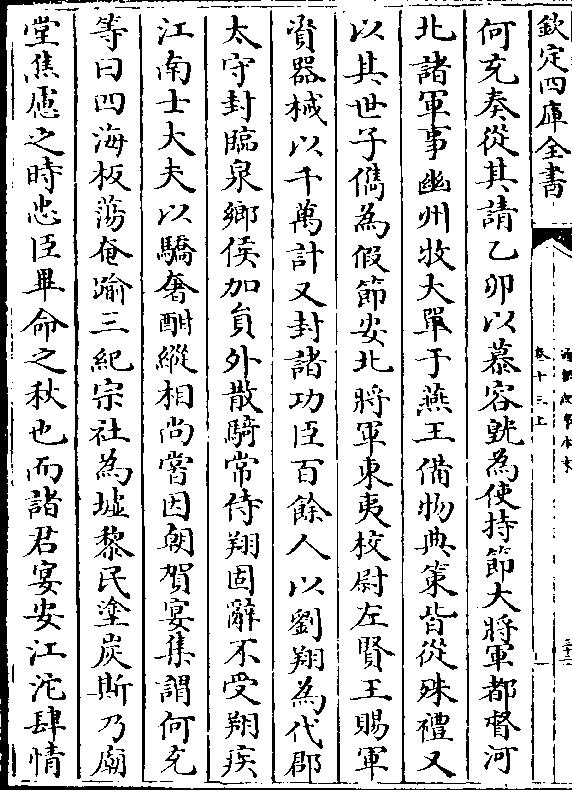 欽定四庫全書
何充奏從其請乙卯以慕容皝為使持節大將軍都督河
北諸軍事幽州牧大單于燕王備物典策皆從殊禮又
以其世子儁為假節安北將軍東夷校尉左賢王賜軍
資器械以千萬計又封諸功臣百餘人以劉翔為代郡
太守封臨泉鄉侯加員外散騎常侍翔固辭不受翔疾
江南士大夫以驕奢酣縱相尚嘗因朝賀宴集謂何充
等曰四海板蕩奄踰三紀宗社為墟黎民塗炭斯乃廟
堂焦慮之時忠臣畢命之秋也而諸君宴安江沱肆情